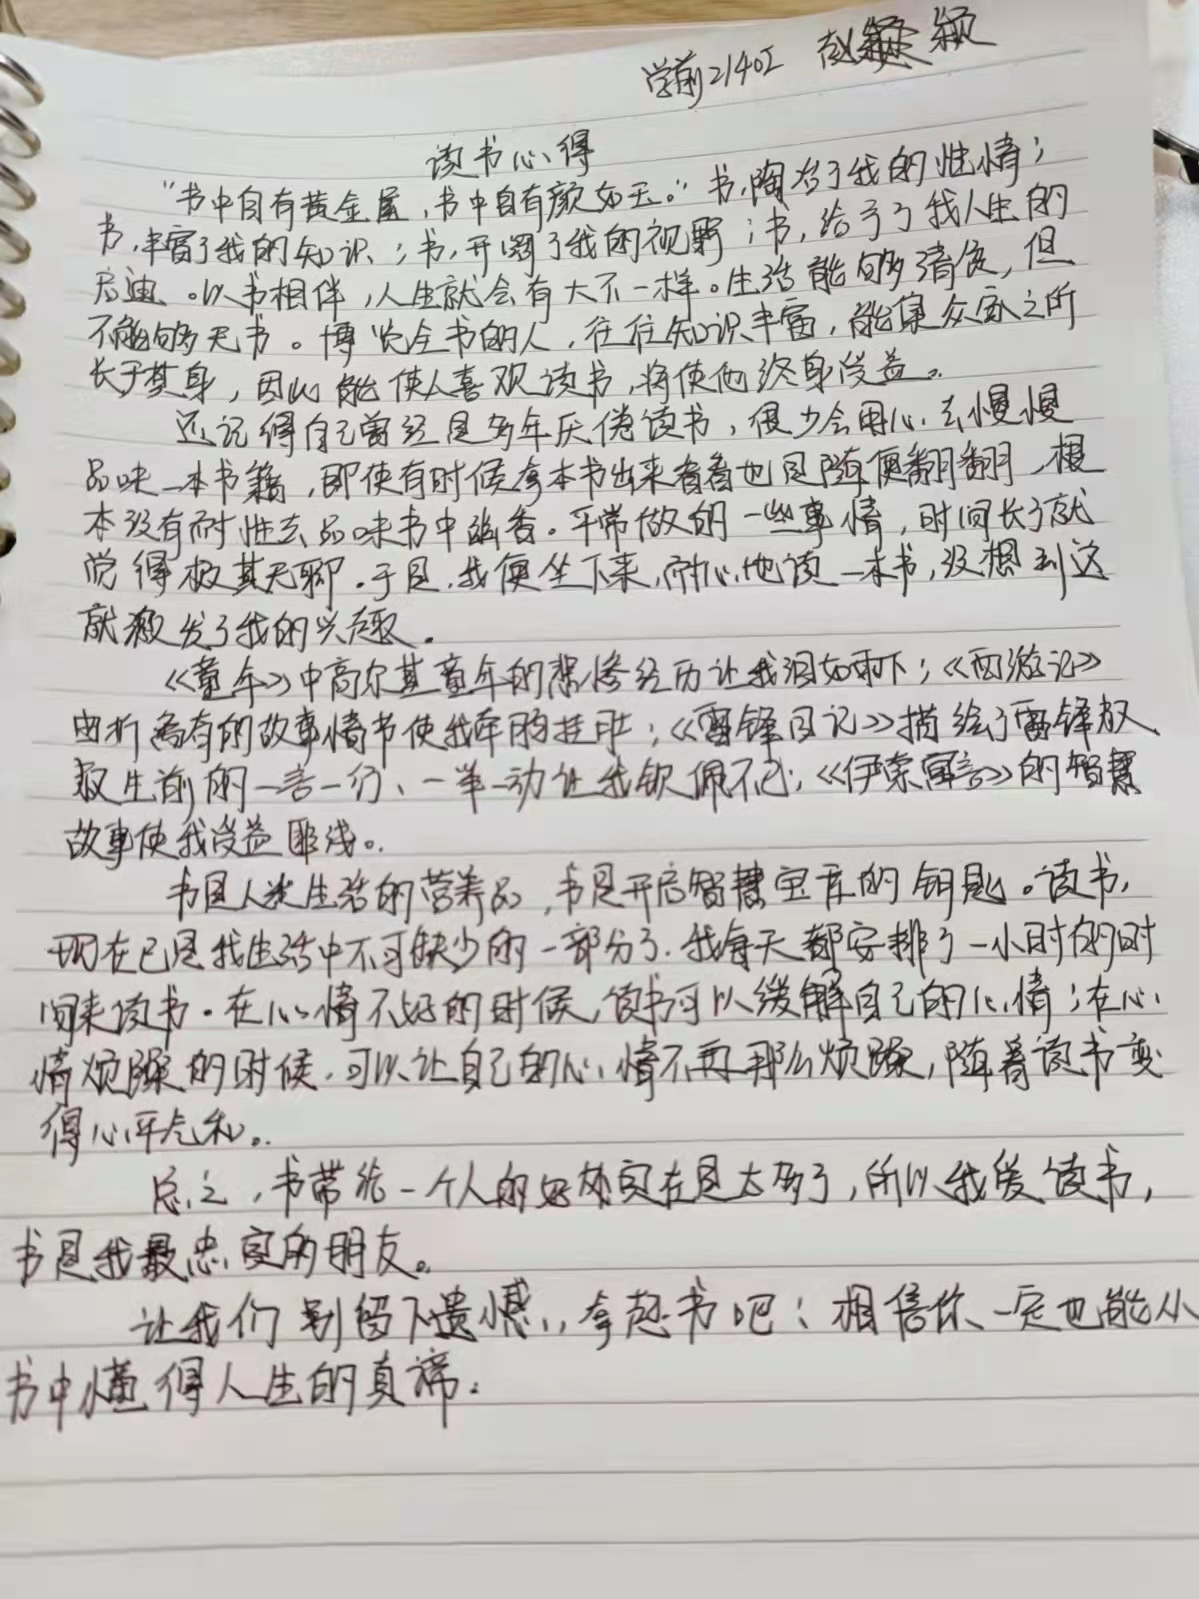 学前21402 赵颖
读书心得
“书中自有黄金屋，书中自有颜如玉。”书，陶冶了我的性情；
书，丰富了我的知识；书，开阔了我的视野；书，给予了我人生的
启迪。以书相伴，人生就会有大不一样。生活能够清贫，但
不能够无书。博览全书的人，往往知识丰富，能集众家之所
长于其身，因此能使人喜观读书，将使他终身受益。
还记得自己曾经是多年厌倦读书，很少会用心去慢慢
品味一本书籍，即使有时候拿本书出来看看也是随便翻翻，根
本没有耐性去品味书中幽香。平常做的一些事情，时间长了就
觉得极其无聊。于是，我便坐下来，耐心地读一本书，没想到这
就激发了我的兴趣。
《童年》中高尔基童年的悲惨经历让我泪如雨下；《西游记》
曲折离奇的故事情节使我牵肠挂肚；《雷锋日记》描绘了雷锋叔
叔生前的一言一行、一举一动让我钦佩不已；《伊索寓言》的智慧
故事使我受益匪浅。
书是人类生活的营养品，书是开启智慧宝库的钥匙。读书，
现在已是我生活中不可缺少的一部分了，我每天都安排了一小时的时
间来读书。在心情不好的时候，读书可以缓解自己的心情；在心
情烦躁的时候，可以让自己的心情不再那么烦躁，随着读书变
得心平气和。
总之，书带给一个人的好处实在是太多了，所以我爱读书，
书是我最忠实的朋友。
让我们别留下遗憾，拿起书吧！相信你一定也能从
书中懂得人生的真谛。